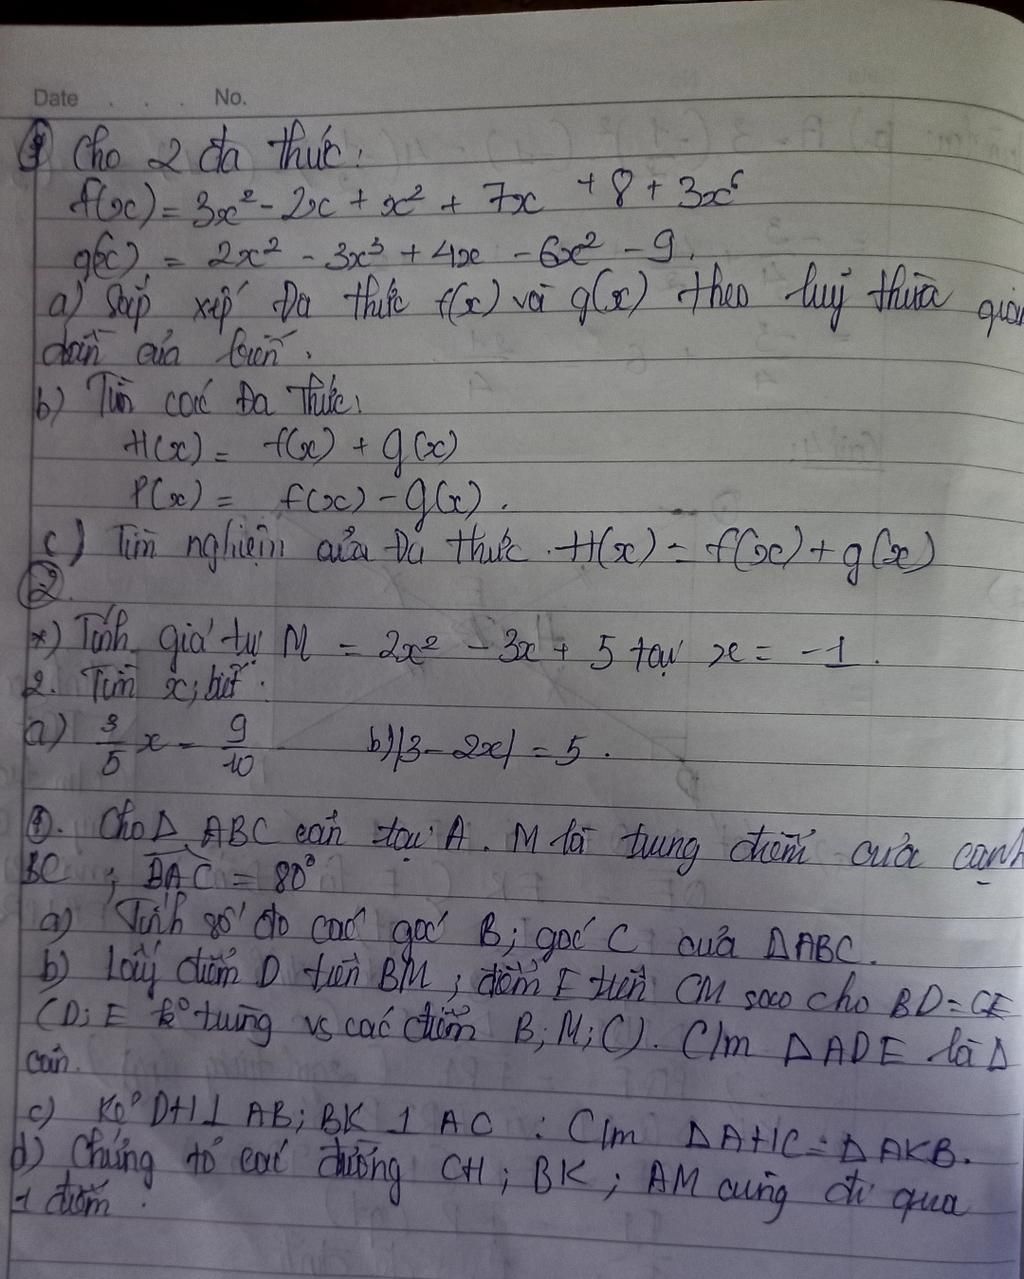 Date . . . No.
① Cho 2 đa thức:
f(x) = 3x² - 2x + x² + 7x + 8 + 3x⁶
g(x) = 2x² - 3x³ + 4x - 6x² - 9.
a) Sắp xếp Đa thức f(x) và g(x) theo luỹ thừa giảm
dần của biến.
b) Tìm các Đa thức:
H(x) = f(x) + g(x)
P(x) = f(x) - g(x).
c) Tìm nghiệm của Đa thức H(x) = f(x) + g(x)
②
*) Tính giá trị M = 2x² - 3x + 5 tại x = -1.
2. Tìm x, biết:
a) 3/5 x - 9/10 b) |3 - 2x| = 5.
①. Cho Δ ABC cân tại A. M là trung điểm của cạnh
BC ; BAC = 80°
a) Tính số đo các góc B; góc C của ΔABC.
b) Lấy điểm D trên BM; điểm E trên CM sao cho BD = CE
(D; E ko trùng vs các điểm B; M; C). C/m ΔADE là Δ
cân.
c) Kẻ DH ⊥ AB; BK ⊥ AC : C/m ΔAHC = ΔAKB.
d) Chứng tỏ các đường CH; BK; AM cùng đi qua
1 điểm.